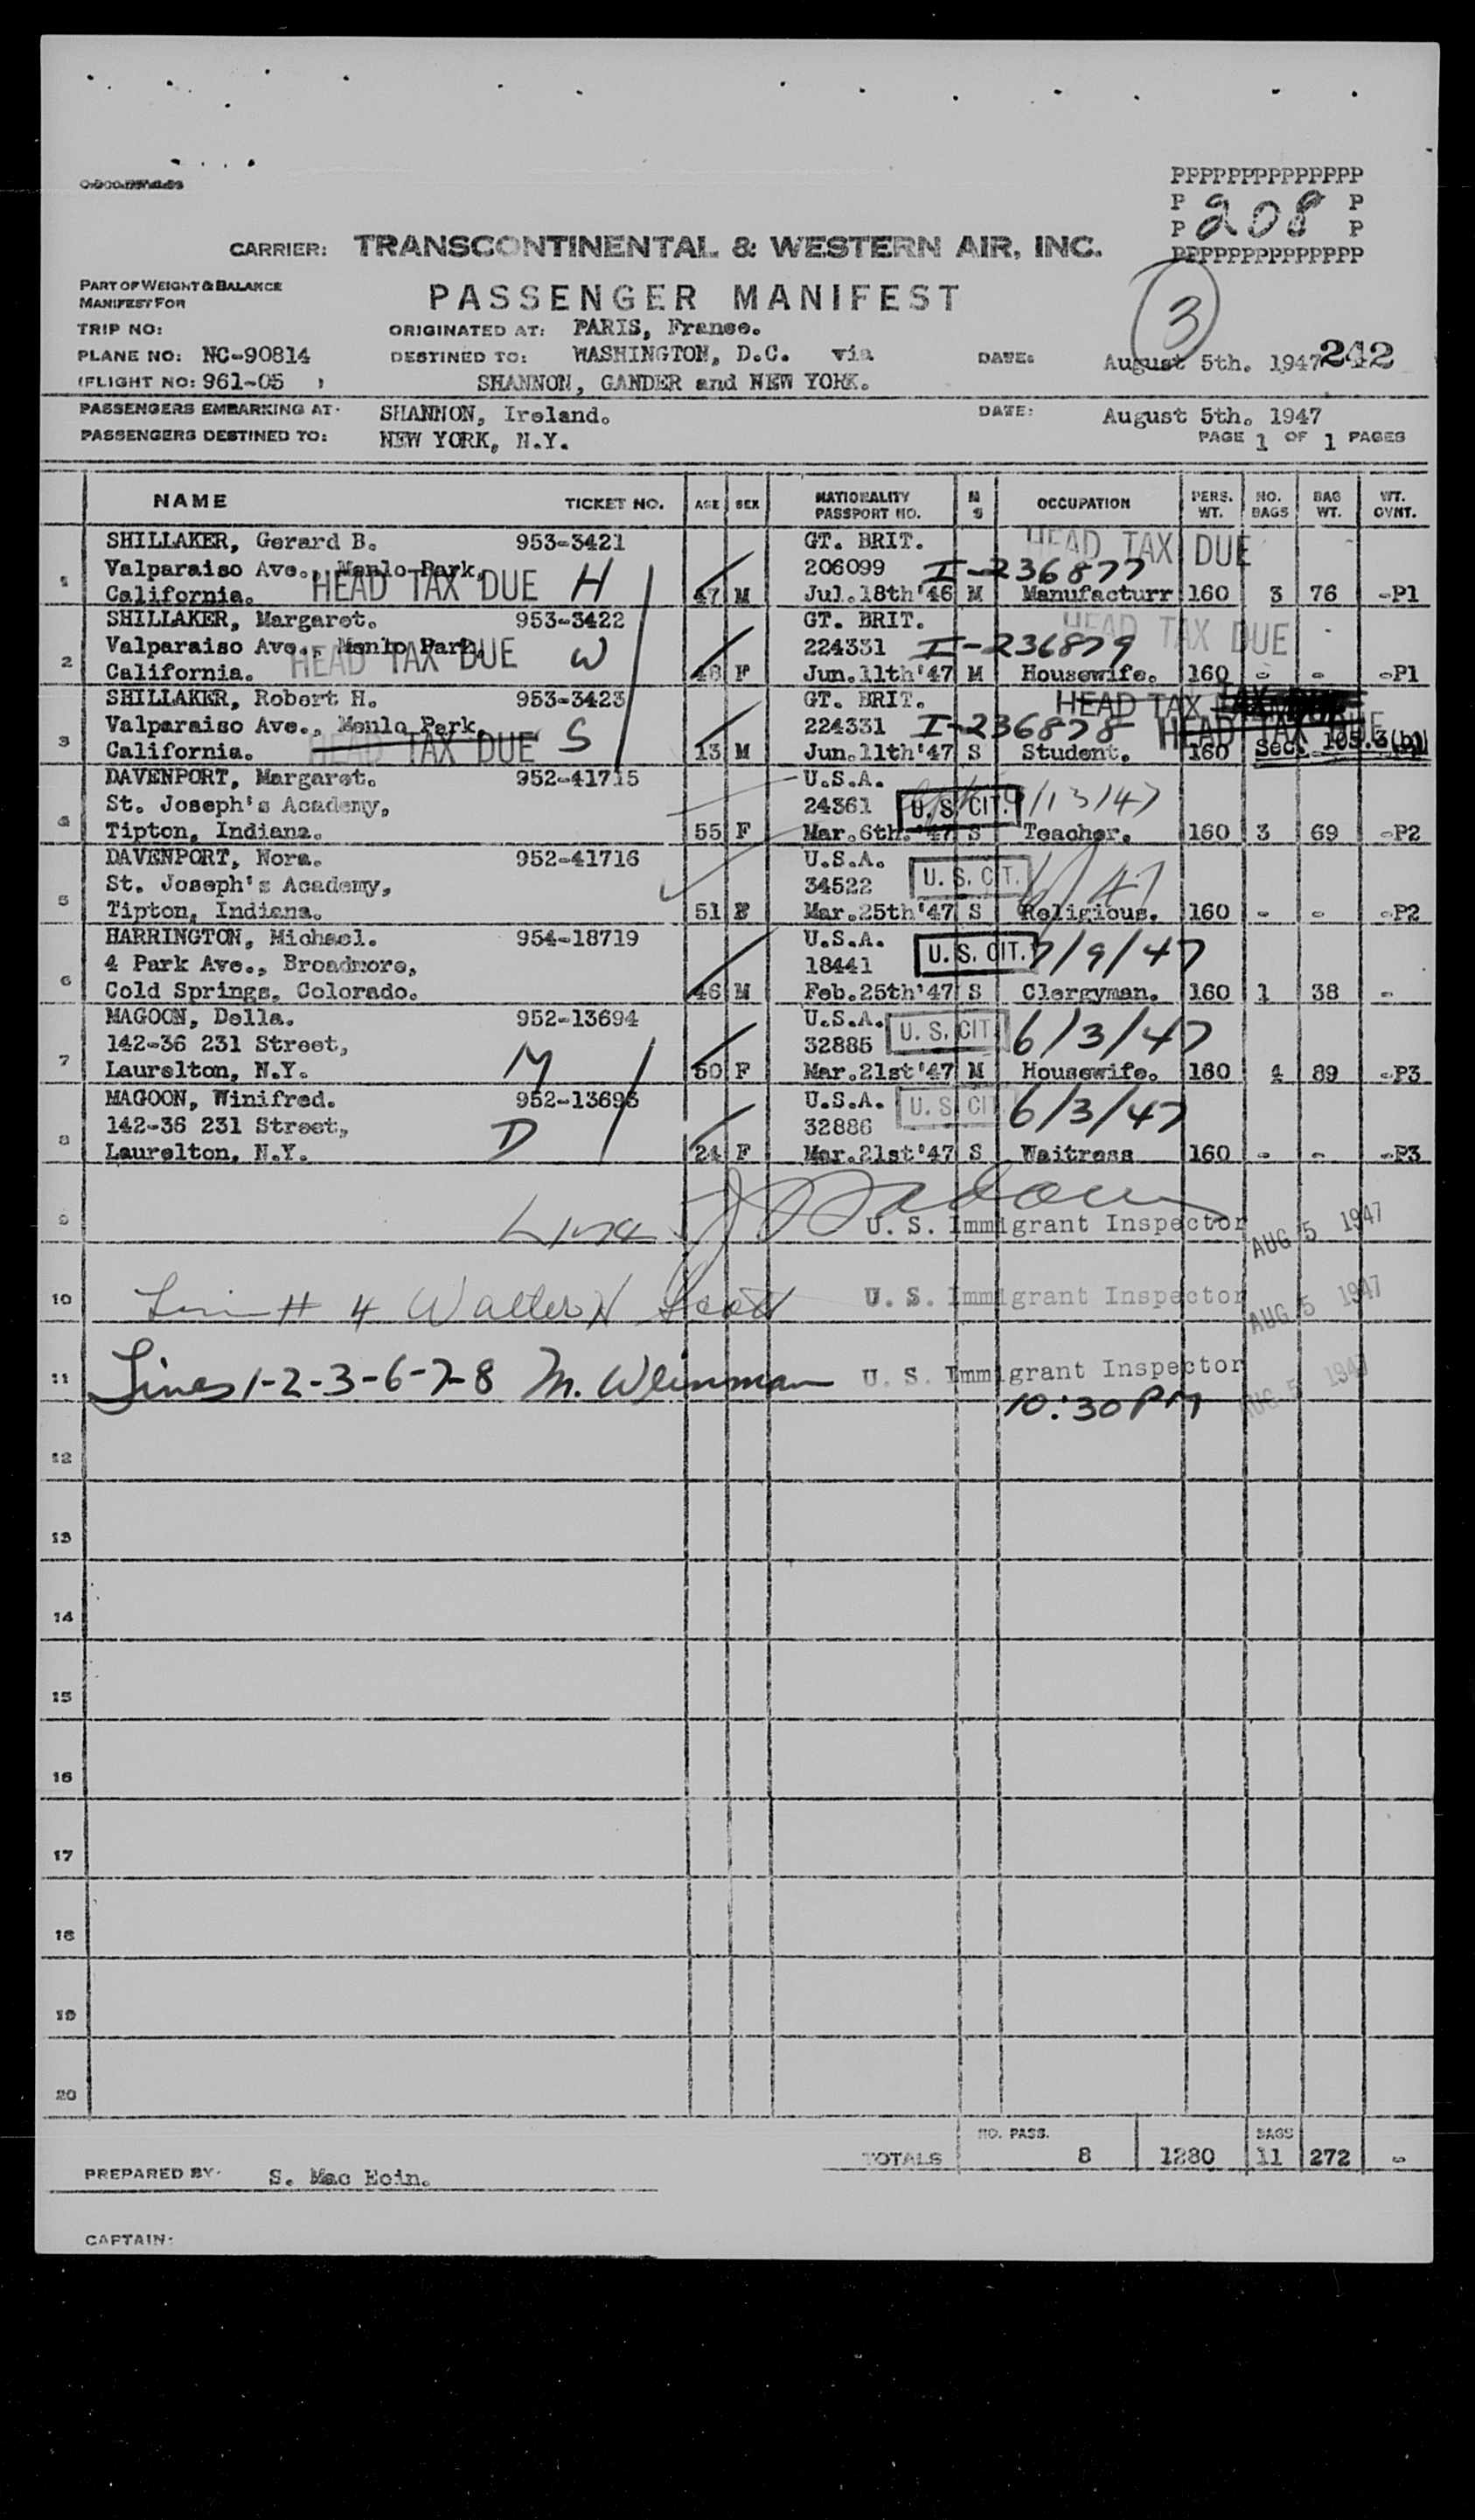 PPPPPPPPPPPPPP
P 208 P
P P
PPPPPPPPPPPPPP
CARRIER: TRANSCONTINENTAL & WESTERN AIR, INC.
PART OF WEIGHT & BALANCE
MANIFEST FOR
PASSENGER MANIFEST
3
TRIP NO:
ORIGINATED AT: PARIS, France.
PLANE NO: NC-90814
DESTINED TO: WASHINGTON, D.C. via
DATE: August 5th. 1947 242
(FLIGHT NO: 961-05 )
SHANNON, GANDER and NEW YORK.
PASSENGERS EMBARKING AT: SHANNON, Ireland.
DATE: August 5th. 1947
PASSENGERS DESTINED TO: NEW YORK, N.Y.
PAGE 1 OF 1 PAGES
NAME TICKET NO. AGE SEX NATIONALITY PASSPORT NO. M S OCCUPATION PERS. WT. NO. BAGS BAG WT. WT. OVNT.
SHILLAKER, Gerard B. 953-3421 GT. BRIT. HEAD TAX DUE
Valparaiso Ave., Menlo Park, HEAD TAX DUE H 206099 I-236877
1 California. 47 M Jul.18th'46 M Manufacturr 160 3 76 -P1
SHILLAKER, Margaret. 953-3422 GT. BRIT. HEAD TAX DUE
Valparaiso Ave., Menlo Park, HEAD TAX DUE W 224331 I-236879
2 California. 48 F Jun.11th'47 M Housewife. 160 - - -P1
SHILLAKER, Robert H. 953-3423 GT. BRIT. HEAD TAX
Valparaiso Ave., Menlo Park, HEAD TAX DUE S 224331 I-236878 HEAD TAX DUE
3 California. 13 M Jun.11th'47 S Student. 160 Sec. 105.3(b)
DAVENPORT, Margaret. 952-41715 U.S.A.
St. Joseph's Academy, 24361 U. S. CIT. /13/47
4 Tipton, Indiana. 55 F Mar.6th.'47 S Teacher. 160 3 69 -P2
DAVENPORT, Nora. 952-41716 U.S.A.
St. Joseph's Academy, 34522 U. S. CIT. /47
5 Tipton, Indiana. 51 F Mar.25th'47 S Religious. 160 - - -P2
HARRINGTON, Michael. 954-18719 U.S.A.
4 Park Ave., Broadmore, 18441 U. S. CIT. 7/9/47
6 Cold Springs, Colorado. 46 M Feb.25th'47 S Clergyman. 160 1 38 -
MAGOON, Della. 952-13694 U.S.A.
142-36 231 Street, 32885 U. S. CIT 6/3/47
7 Laurelton, N.Y. M 50 F Mar.21st'47 M Housewife. 160 4 89 -P3
MAGOON, Winifred. 952-13695 U.S.A.
142-36 231 Street, 32886 U. S. CIT 6/3/47
8 Laurelton, N.Y. D 24 F Mar.21st'47 S Waitress 160 - - -P3
9 Line U. S. Immigrant Inspector AUG 5 1947
10 Line # 4 Walter N Scott U. S. Immigrant Inspector AUG 5 1947
11 Lines 1-2-3-6-7-8 M. Weinman U. S. Immigrant Inspector AUG 5 1947
10:30 PM
12
13
14
15
16
17
18
19
20
TOTALS NO. PASS. 8 1280 BAGS 11 272 -
PREPARED BY: S. Mac Eoin.
CAPTAIN: